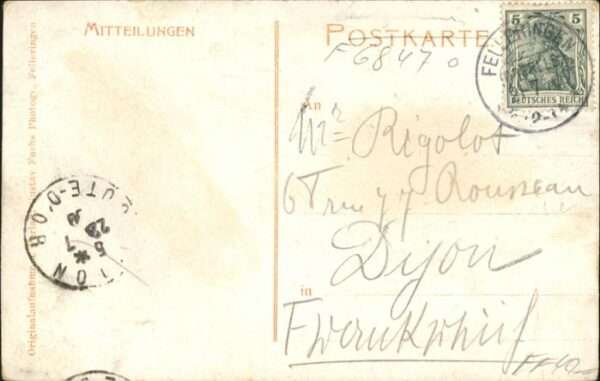 MITTEILUNGEN
POSTKARTE
F6847
5 5
DEUTSCHES REICH
FELLERINGEN
An
Mr Rigolot
6 T rue JJ Rousseau
Dijon
in
Frankreich
CÔTE-D'OR
Originalaufnahme Gustav Fuchs Photogr., Felleringen